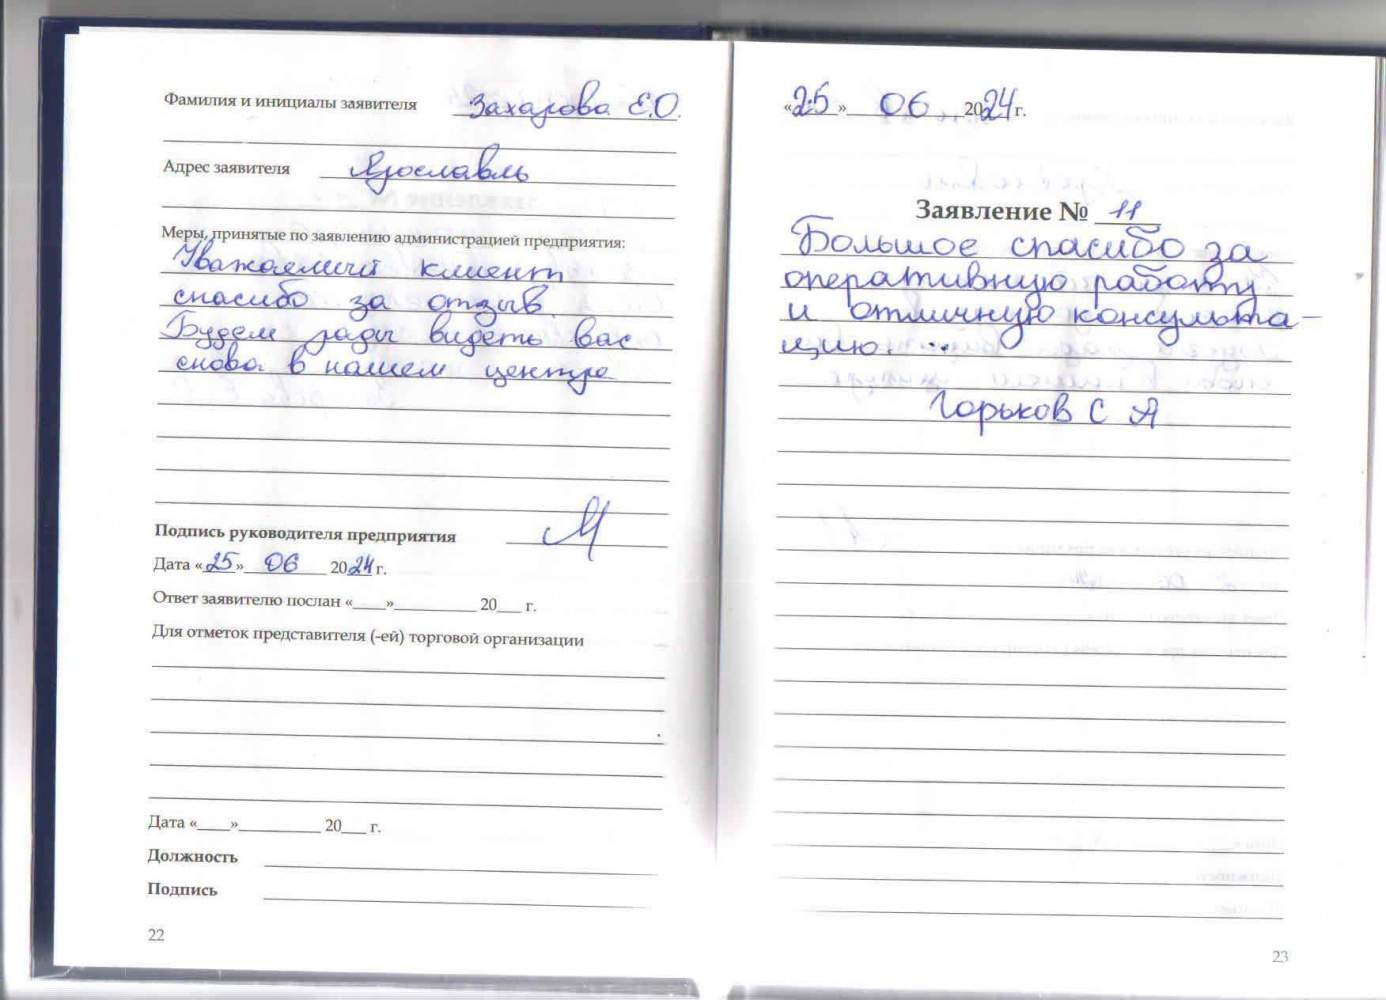 Фамилия и инициалы заявителя Захарова Е.О.
Адрес заявителя Ярославль
Меры, принятые по заявлению администрацией предприятия:
Уважаемый клиент
спасибо за отзыв.
Будем рады видеть вас
снова в нашем центре
Подпись руководителя предприятия
Дата «25» 06 2024 г.
Ответ заявителю послан «___»__________ 20___ г.
Для отметок представителя (-ей) торговой организации
Дата «____»__________ 20___ г.
Должность
Подпись
22
«25» 06 2024 г.
Заявление № 11
Большое спасибо за
оперативную работу
и отличную консульта-
цию.
Горьков С А
23